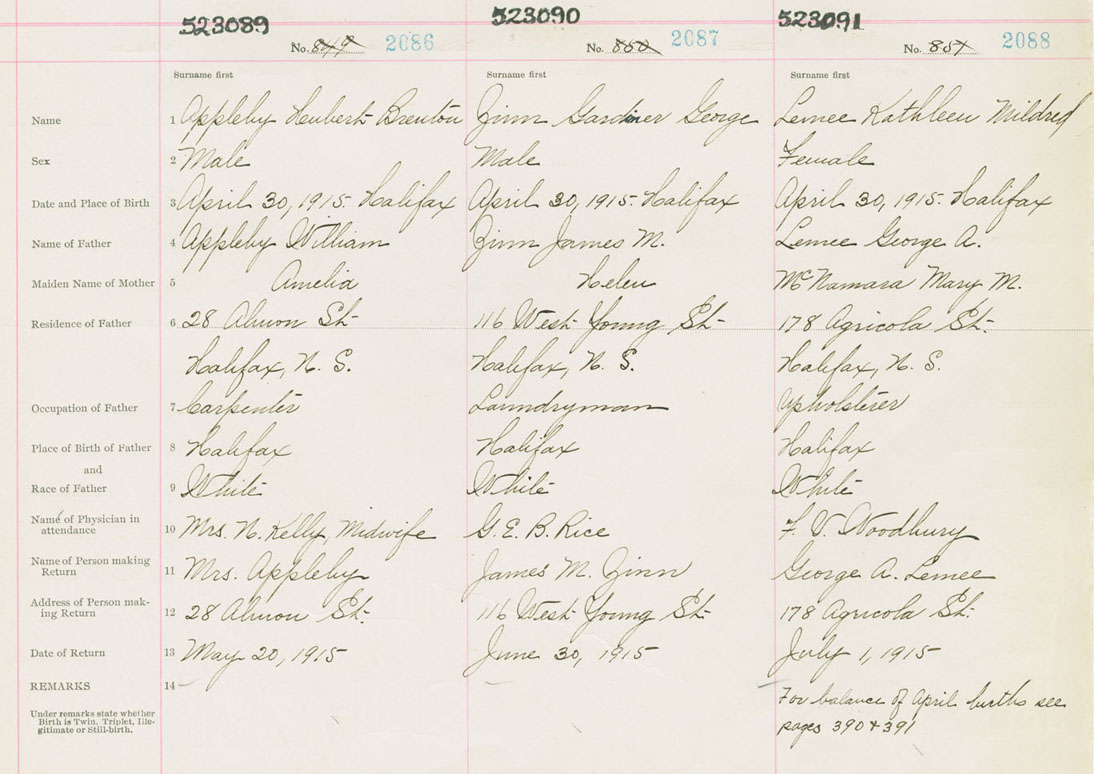 523089 523090 523091
No. 849 2086 No. 850 2087 No. 851 2088
Surname first Surname first Surname first
Name 1 Appleby Heubert Brenton Zinn Gardner George Lemee Kathleen Mildred
Sex 2 Male Male Female
Date and Place of Birth 3 April 30, 1915. Halifax April 30, 1915. Halifax April 30, 1915. Halifax
Name of Father 4 Appleby William Zinn James M. Lemee George A.
Maiden Name of Mother 5 Amelia Helen McNamara Mary M.
Residence of Father 6 28 Almon St. 116 West Young St. 178 Agricola St.
Halifax, N. S. Halifax, N. S. Halifax, N. S.
Occupation of Father 7 Carpenter Laundryman Upholsterer
Place of Birth of Father 8 Halifax Halifax Halifax
and
Race of Father 9 White White White
Name of Physician in
attendance 10 Mrs. N. Kelly, Midwife G. E. B. Rice F. V. Woodbury
Name of Person making
Return 11 Mrs. Appleby James M. Zinn George A. Lemee
Address of Person mak-
ing Return 12 28 Almon St. 116 West Young St. 178 Agricola St.
Date of Return 13 May 20, 1915 June 30, 1915 July 1, 1915
REMARKS 14
For balance of April births see
pages 390 + 391
Under remarks state whether
Birth is Twin, Triplet, Ille-
gitimate or Still-birth.